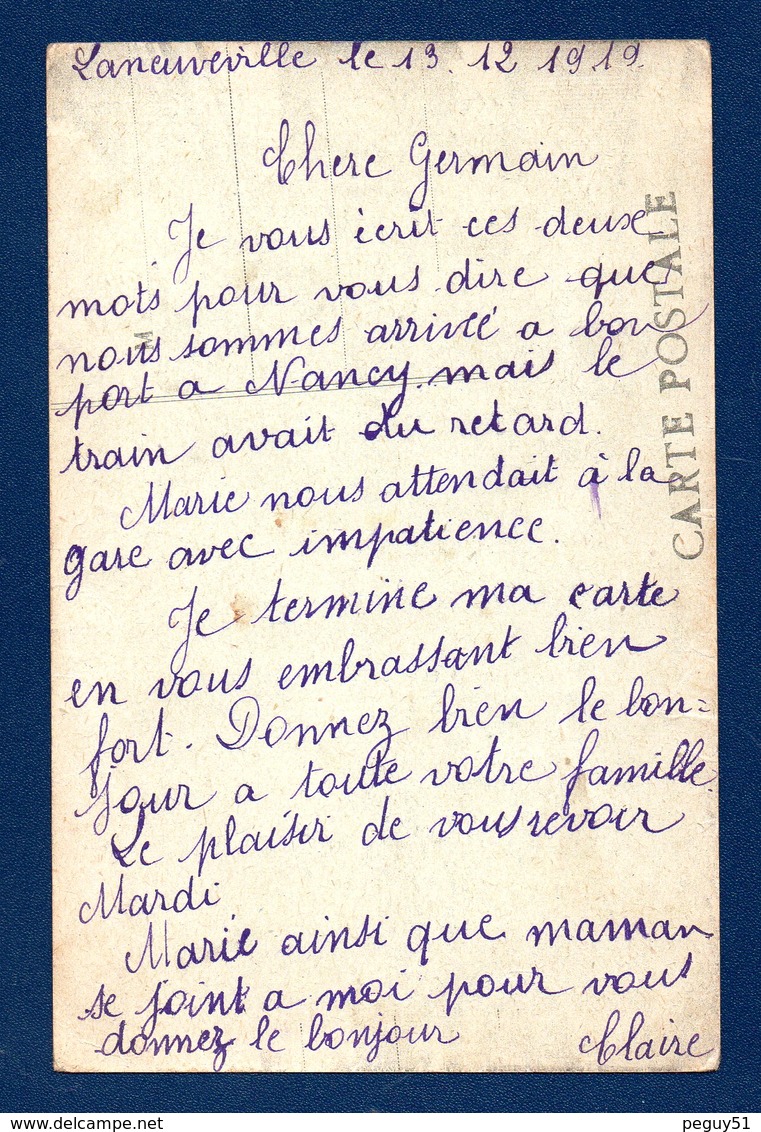 Laneuveville le 13. 12 1919.
Chere Germain
Je vous écrit ces deux
mots pour vous dire que
nous sommes arrivée a bon
port a Nancy mais le
train avait du retard.
Marie nous attendait à la
gare avec impatience.
Je termine ma carte
en vous embrassant bien
fort. Donnez bien le bon=
jour a toute votre famille.
Le plaisir de vous revoir
Mardi
Marie ainsi que maman
se joint a moi pour vous
donnez le bonjour Claire
CARTE POSTALE
M
delcampe.net
peguy51